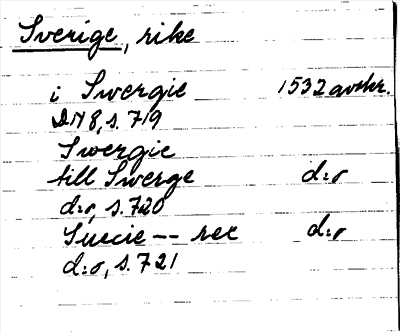 Sverige, rike
i Swergie 1532 avskr.
DN 8, s. 719
Swergie
till Swerge d:o
d:o, s. 720
Suecie -- rex d:o
d:o, s. 721